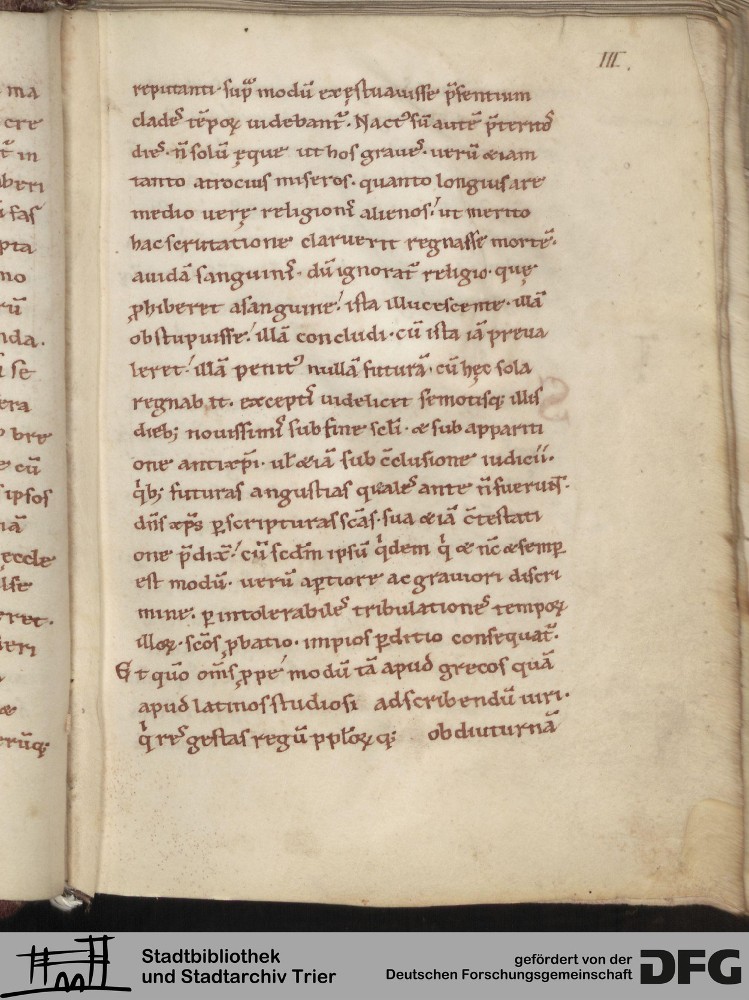 III.
ma
cre
t̄ in
beri
fas
pta
no
rū
nda.
i se
era
bre
e cū
ipsos
iā
eccle
lse
ret.
beri
æ
erūq;
reputanti· sup̄ modū exęstuauisse p̄sentium
clades tēpoꝝ uidebant᷑. Nact᷒ sū autē p̄teritos
dies· n̄ solū ęque ut hos graues· uerū &iam
tanto atrocius miseros· quanto longius a re
medio uerę religionis alienos! ut merito
hac scrutatione claruerit regnasse mortē·
auidā sanguinis· dū ignorat᷑ religio· quę
ꝓhiberet a sanguine! ista illucescente· illā
obstupuisse! illā concludi· cū ista iā preua
leret! illā penit᷒ nullā futurā· cū hęc sola
regnabit· exceptis uidelicet semotisq; illis
dieb; nouissimis sub fine scl̄i· & sub appariti
one antixp̄i· ul̄ &iā sub c̄clusione iudicii·
q̇b; futuras angustias quales ante n̄ fuerunt·
dn̄s xp̄s ꝑ scripturas sc̄as· sua &iā c̄testati
one p̄dix̄! cū scd̄m ipsū q̇dem q̇ & nc̄ & semp̄
est modū· uerū aꝑtiore ac grauiori discri
mine· ꝑ intolerabiles tribulationes tempoꝝ
illoꝝ· sc̄os ꝓbatio· impios ꝑditio consequat᷑·
Et qūo om̄s ꝓpe modū tā apud grecos quā
apud latinos studiosi ad scribendū uiri·
q̇ res gestas regū ppl̄oꝝq; ob diuturnā
Stadtbibliothek
und Stadtarchiv Trier
gefördert von der
Deutschen Forschungsgemeinschaft
DFG